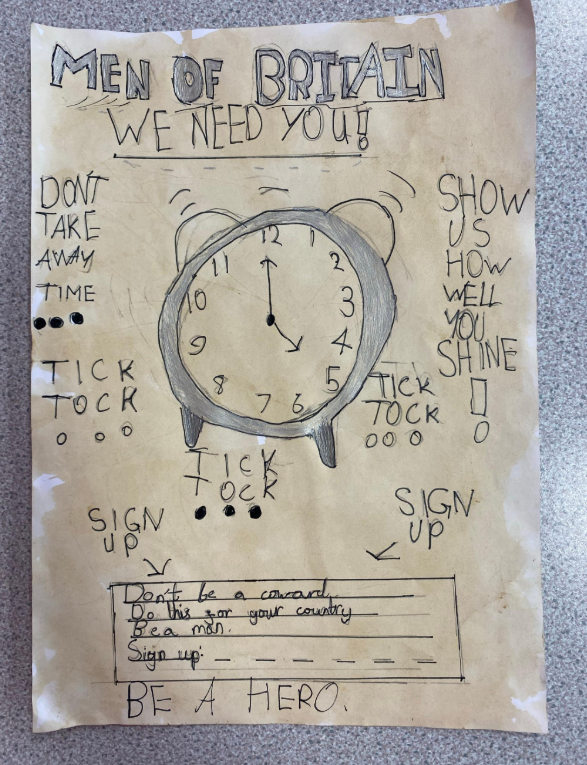 MEN OF BRITAIN
WE NEED YOU!
DON'T
TAKE
AWAY
TIME
...
TICK
TOCK
...
SHOW
US
HOW
WELL
YOU
SHINE
!
12
1
2
3
4
5
6
7
8
9
10
11
TICK
TOCK
...
TICK
TOCK
...
SIGN
UP
SIGN
UP
Don't be a coward,
Do this for your country
Be a man.
Sign up: _ _ _ _ _ _ _
BE A HERO.